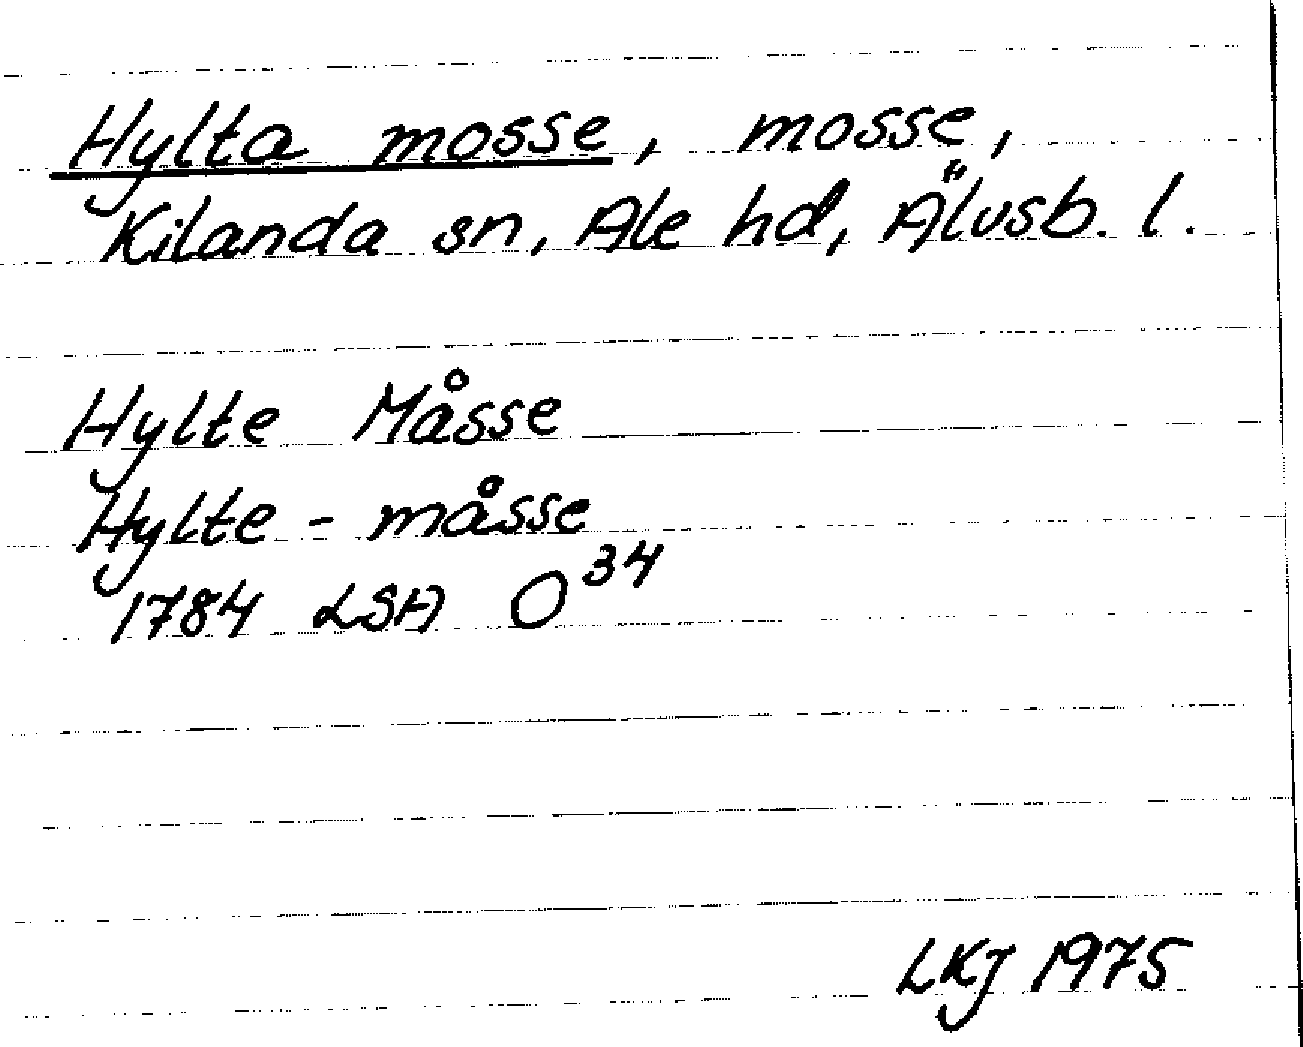 Hylta mosse, mosse,
Kilanda sn, Ale hd, Älvsb. l.
Hylte Måsse
Hylte - måsse
1784 LSA O³⁴
LKJ 1975